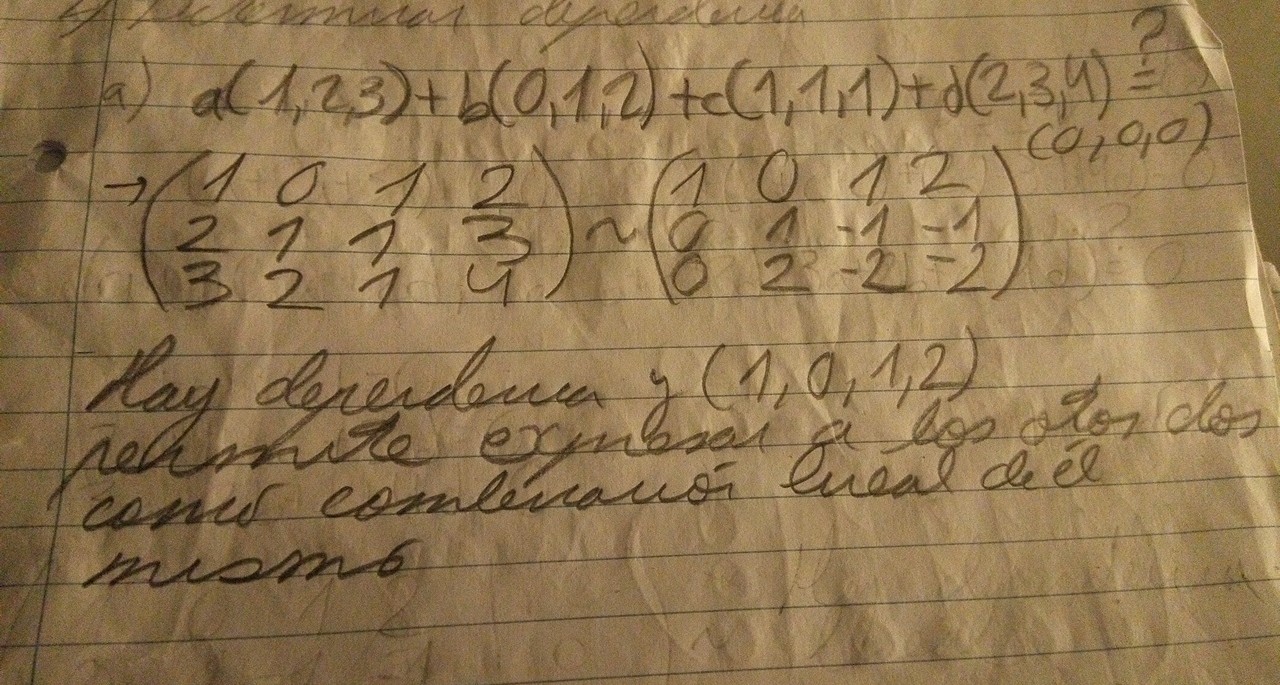 dependencia
a) a(1,2,3)+b(0,1,2)+c(1,1,1)+d(2,3,4) =?
(0,0,0)
→ (1 0 1 2) ~ (1 0 1 2)
(2 1 1 3) (0 1 -1 -1)
(3 2 1 4) (0 2 -2 -2)
Hay dependencia y (1,0,1,2)
permite expresar a los otros dos
como combinación lineal de él
mismo